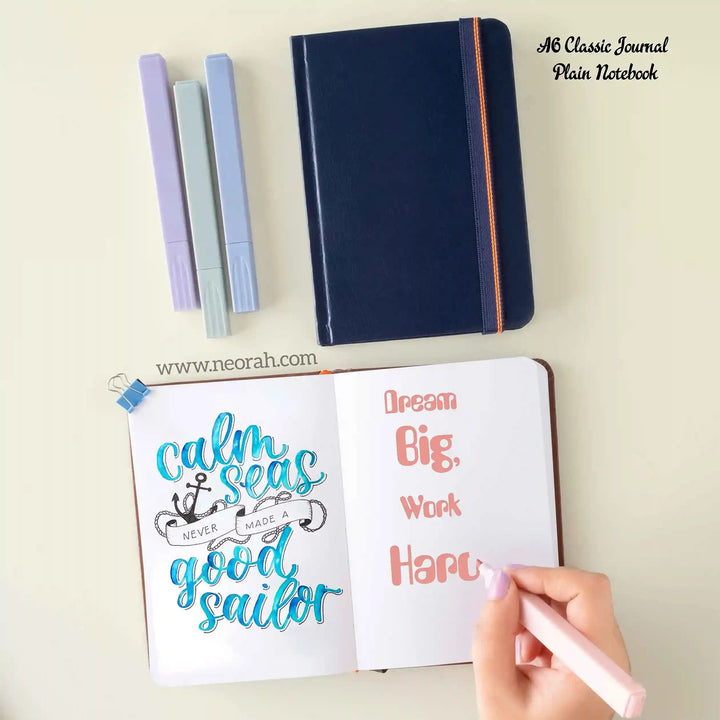 A6 Classic Journal
Plain Notebook
www.neorah.com
calm
seas
NEVER MADE A
good
sailor
Dream
Big,
Work
Hard